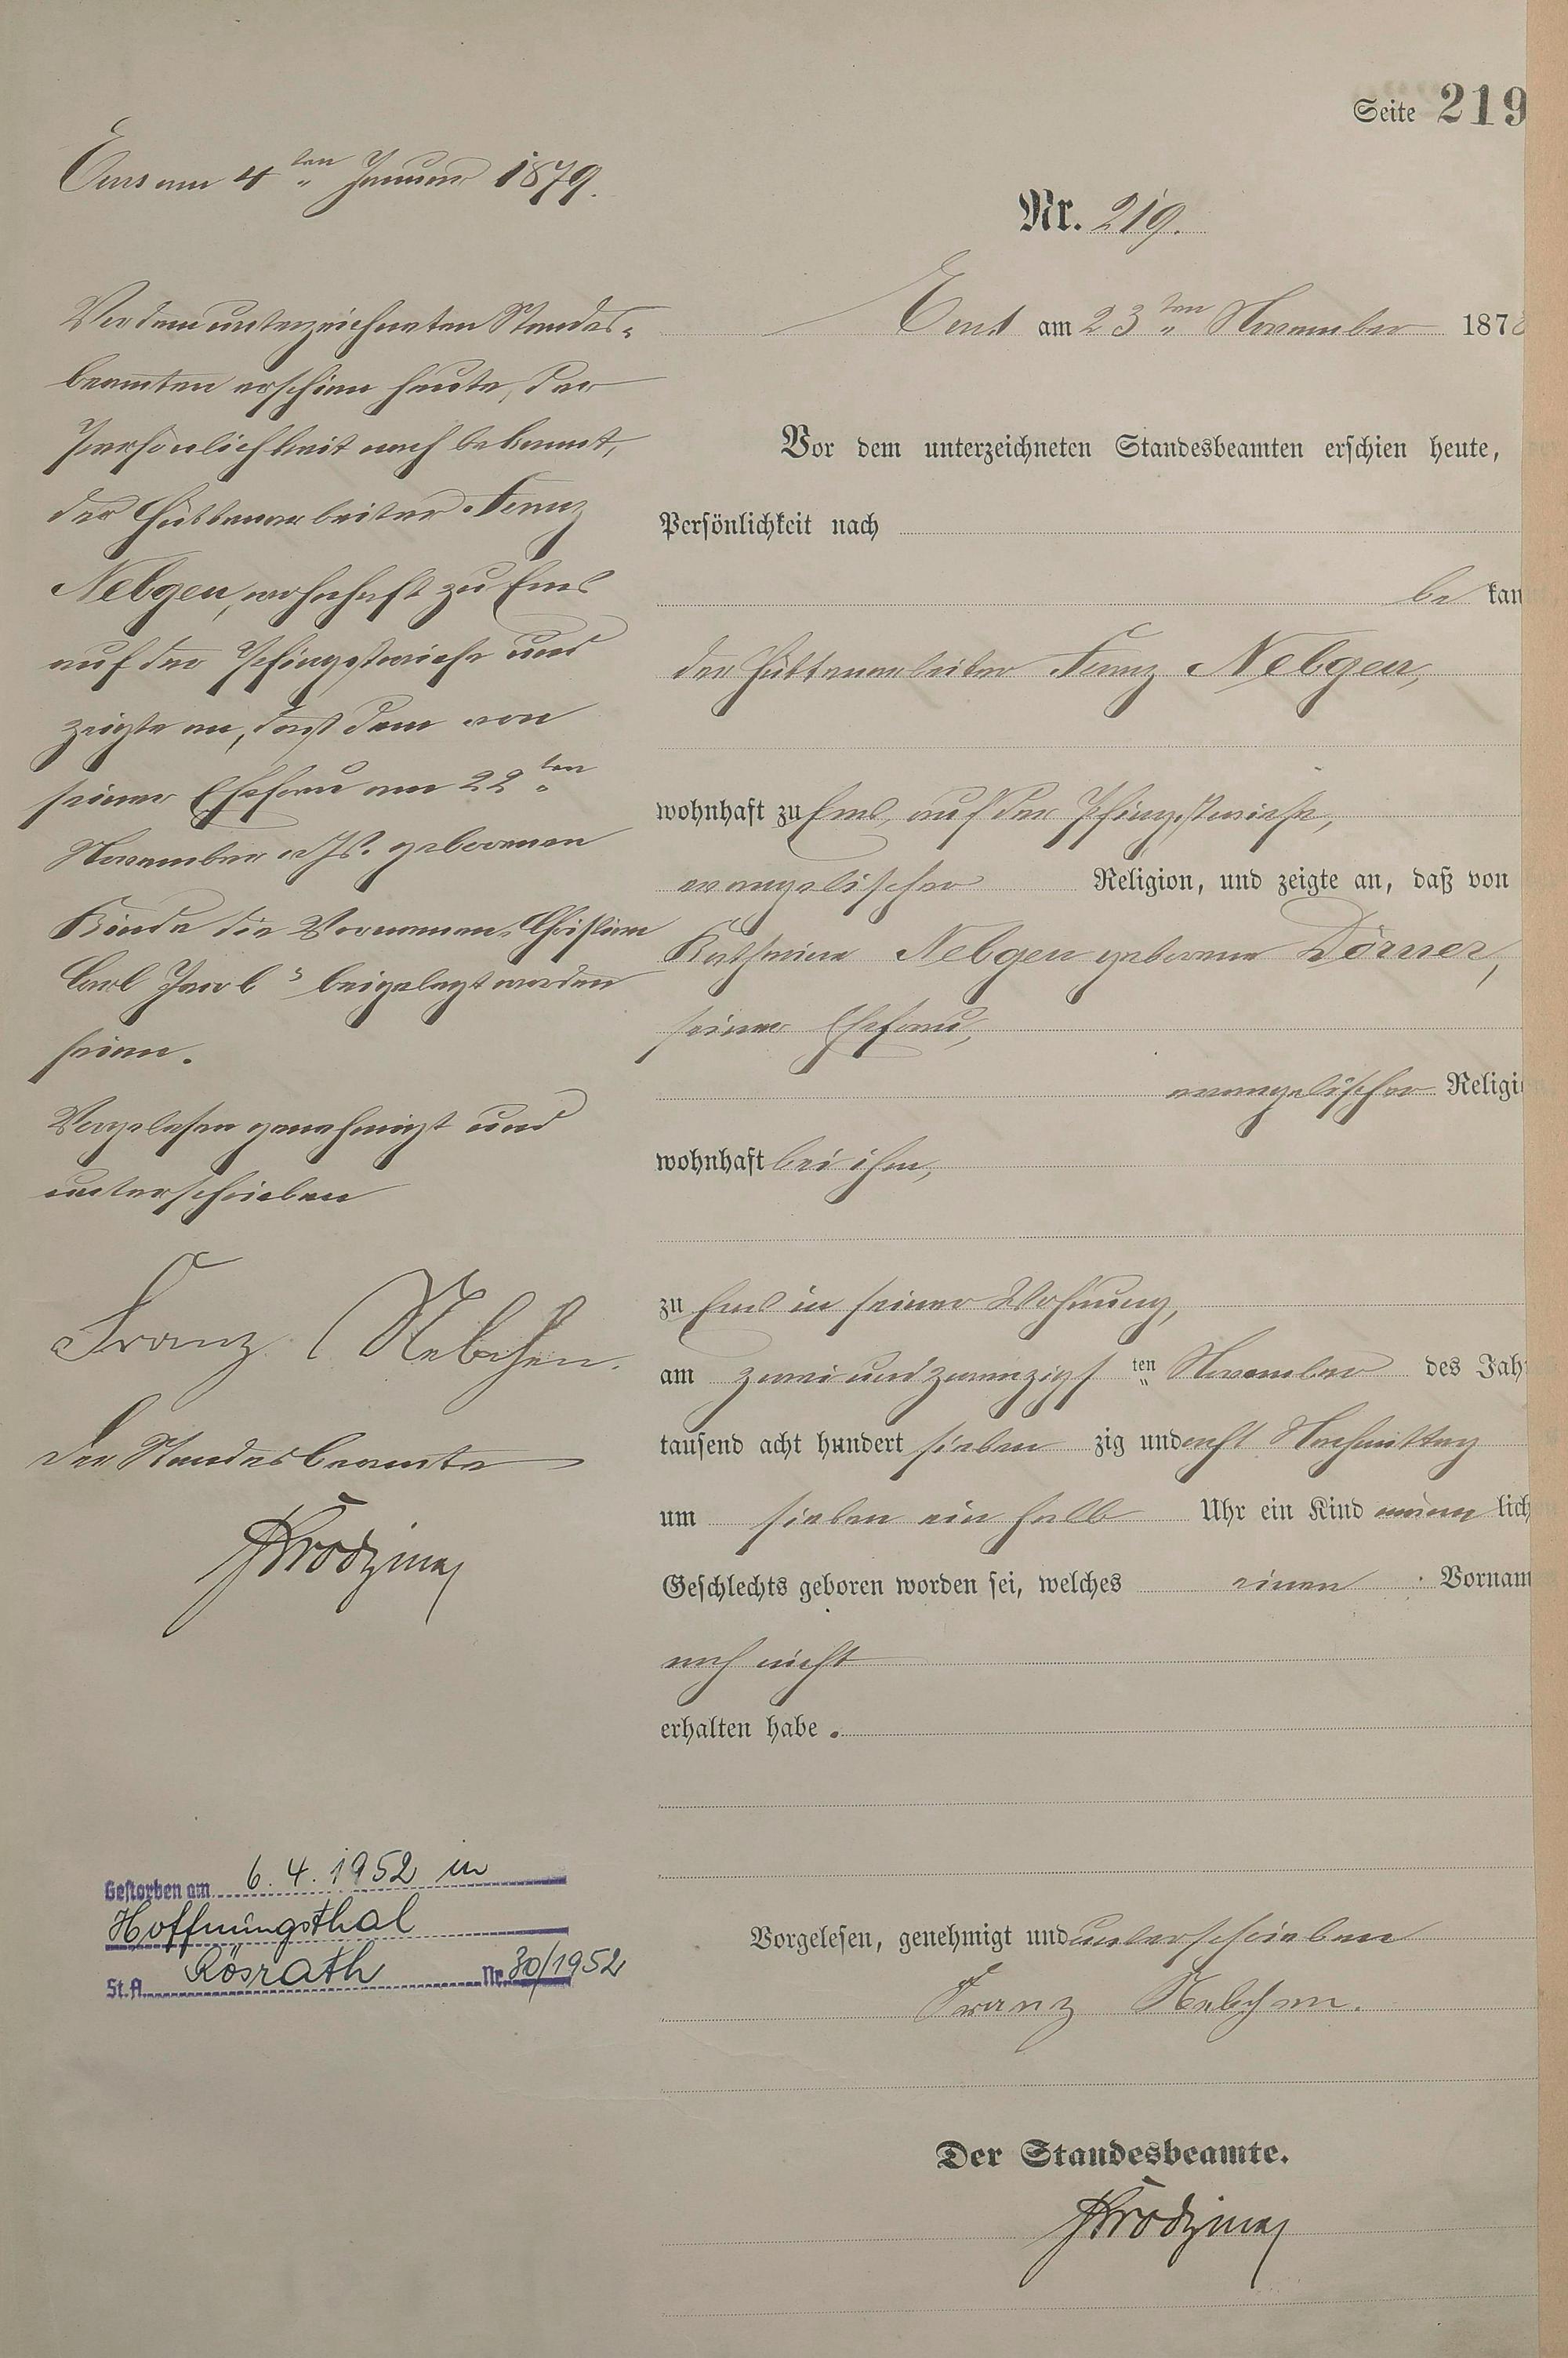 Seite 219
Nr. 219.
Ems am 23ten November 1878
Vor dem unterzeichneten Standesbeamten erschien heute,
Persönlichkeit nach
be kan
der Hüttenarbeiter Franz Nebgen,
wohnhaft zu Ems, auf der Pfingstwiese,
evangelischer Religion, und zeigte an, daß von
Katharina Nebgen geborene Dörner,
seiner Ehefrau,
evangelischer Religi
wohnhaft bei ihm,
zu Ems in seiner Wohnung,
am zwei und zwanzigsten November des Jah
tausend acht hundert sieben zig und acht Nachmittag
um sieben ein halb Uhr ein Kind männ lich
Geschlechts geboren worden sei, welches einen Vornam
noch nicht
erhalten habe.
Vorgelesen, genehmigt und unterschrieben
Franz Nebchen.
Der Standesbeamte.
Ems am 4ten Januar 1879.
Vor dem unterzeichneten Standes-
beamten erschien heute, der
Persönlichkeit nach bekannt,
der Hüttenarbeiter Franz
Nebgen, wohnhaft zu Ems
auf der Pfingstwiese und
zeigte an, daß dem von
seiner Ehefrau am 22ten
November v. Js. geborenen
Kinde die Vornamen „Christian
Carl Jacob" beigelegt worden
seien.
Vorgelesen genehmigt und
unterschrieben
Franz Nebchen.
Der Standesbeamte
Gestorben am 6.4.1952 in
Hoffnungsthal
St.A. Rösrath Nr. 30/1952